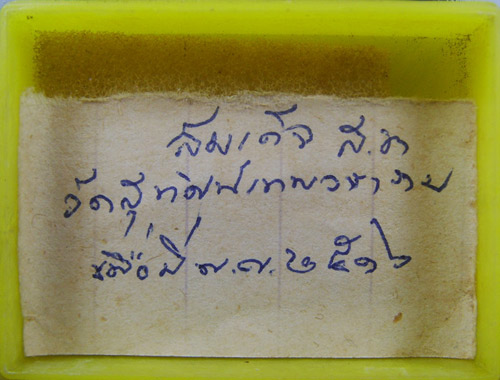 สมเด็จ ส.ท
วัดสุทัศน์เทพวราราม
เมื่อปี พ.ศ. ๒๕๑๖